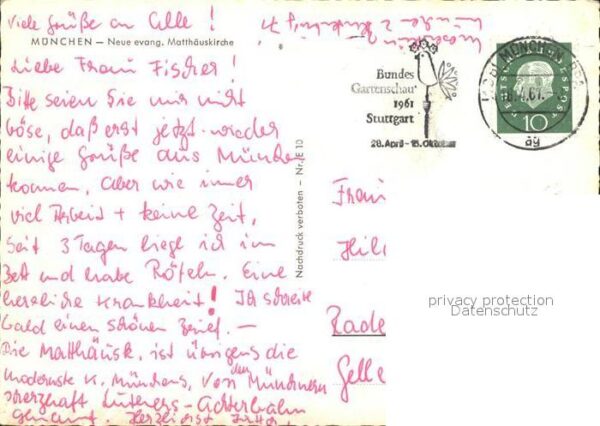 Viele Grüße an Alle!
MÜNCHEN — Neue evang. Matthäuskirche
Liebe Frau Fischer!
Bitte seien Sie mir nicht
böse, daß erst jetzt wieder
einige Grüße aus München
kommen, aber wie immer
viel Arbeit + keine Zeit,
Seit 3 Tagen liege ich im
Bett und habe Röteln. Eine
herrliche Krankheit! Ich schreibe
bald einen schönen Brief. —
Die Matthäusk. ist übrigens die
modernste K. Münchens, von den Münchnern
scherzhaft Luthers-Achterbahn
genannt. Herzlichst
München 2
Nachdruck verboten - Nr. E 10
Bundes
Gartenschau
1961
Stuttgart
28. April - 15. Oktober
MÜNCHEN
4.61.
ag
DEUTSCHE BUNDESPOST
10
Frau
Hil
Rade
Celle
privacy protection
Datenschutz